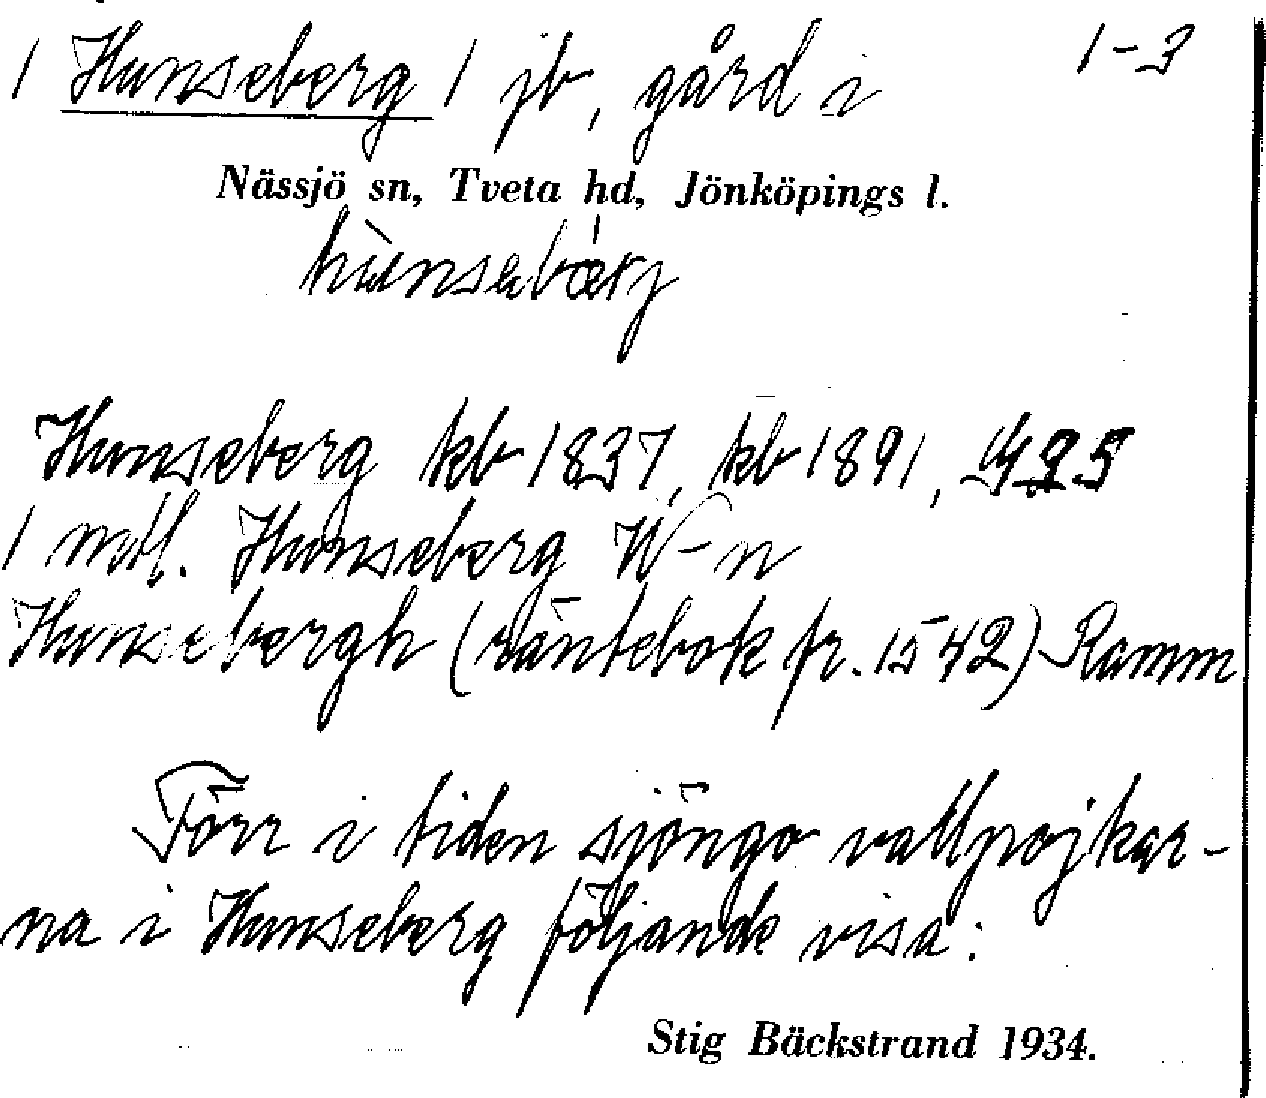 / Hunseberg / jb, gård i 1-3
Nässjö sn, Tveta hd, Jönköpings l.
hùnsebárj
Hunseberg kb 1837, kb 1891,
/ mtl. Hunseberg W-n
Hunsebergh (räntebok fr. 1542) Ramm
Förr i tiden sjöngo vallpojkar-
na i Hunseberg följande visa:
Stig Bäckstrand 1934.